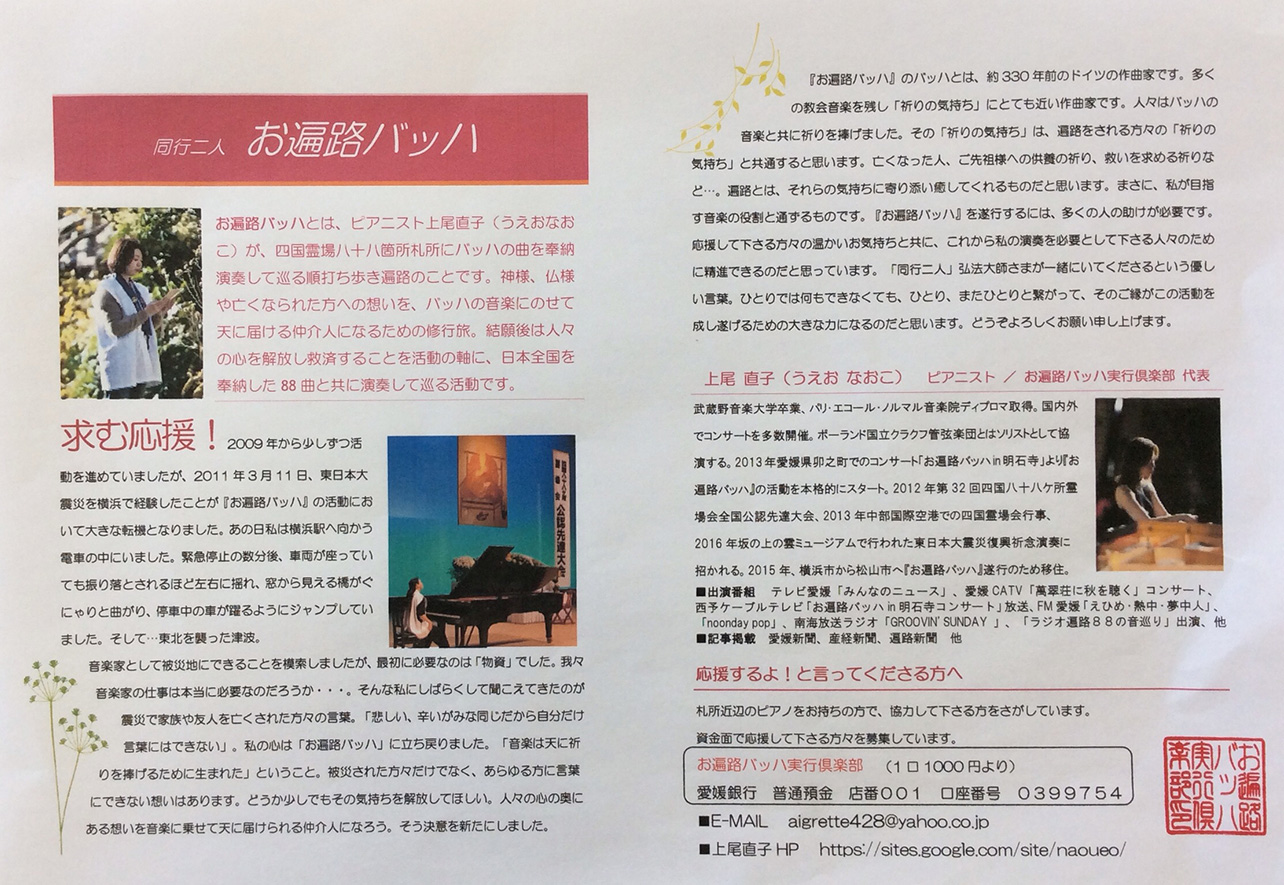 同行二人 お遍路バッハ
お遍路バッハとは、ピアニスト上尾直子(うえおなお
こ)が、四国霊場八十八箇所札所にバッハの曲を奉納
演奏して巡る順打ち歩き遍路のことです。神様、仏様
や亡くなられた方への想いを、バッハの音楽にのせて
天に届ける仲介人になるための修行旅。結願後は人々
の心を解放し救済することを活動の軸に、日本全国を
奉納した 88 曲と共に演奏して巡る活動です。
求む応援! 2009 年から少しずつ活
動を進めていましたが、2011 年 3 月 11 日、東日本大
震災を横浜で経験したことが『お遍路バッハ』の活動にお
いて大きな転機となりました。あの日私は横浜駅へ向かう
電車の中にいました。緊急停止の数分後、車両が座ってい
ても振り落とされるほど左右に揺れ、窓から見える橋がぐ
にゃりと曲がり、停車中の車が躍るようにジャンプしてい
ました。そして…東北を襲った津波。
四国八十八ヶ所
霊場会 公認先達大会
音楽家として被災地にできることを模索しましたが、最初に必要なのは「物資」でした。我々
音楽家の仕事は本当に必要なのだろうか・・・。そんな私にしばらくして聞こえてきたのが
震災で家族や友人を亡くされた方々の言葉。「悲しい、辛いがみな同じだから自分だけ
言葉にはできない」。私の心は「お遍路バッハ」に立ち戻りました。「音楽は天に祈
りを捧げるために生まれた」ということ。被災された方々だけでなく、あらゆる方に言葉
にできない想いはあります。どうか少しでもその気持ちを解放してほしい。人々の心の奥に
ある想いを音楽に乗せて天に届けられる仲介人になろう。そう決意を新たにしました。
『お遍路バッハ』のバッハとは、約 330 年前のドイツの作曲家です。多く
の教会音楽を残し「祈りの気持ち」にとても近い作曲家です。人々はバッハの
音楽と共に祈りを捧げました。その「祈りの気持ち」は、遍路をされる方々の「祈りの
気持ち」と共通すると思います。亡くなった人、ご先祖様への供養の祈り、救いを求める祈りな
ど…。遍路とは、それらの気持ちに寄り添い癒してくれるものだと思います。まさに、私が目指
す音楽の役割と通ずるものです。『お遍路バッハ』を遂行するには、多くの人の助けが必要です。
応援して下さる方々の温かいお気持ちと共に、これから私の演奏を必要として下さる人々のため
に精進できるのだと思っています。「同行二人」弘法大師さまが一緒にいてくださるという優し
い言葉。ひとりでは何もできなくても、ひとり、またひとりと繋がって、そのご縁がこの活動を
成し遂げるための大きな力になるのだと思います。どうぞよろしくお願い申し上げます。
上尾 直子(うえお なおこ) ピアニスト / お遍路バッハ実行倶楽部 代表
武蔵野音楽大学卒業、パリ・エコール・ノルマル音楽院ディプロマ取得。国内外
でコンサートを多数開催。ポーランド国立クラクフ管弦楽団とはソリストとして協
演する。2013 年愛媛県卯之町でのコンサート「お遍路バッハ in 明石寺」より『お
遍路バッハ』の活動を本格的にスタート。2012 年第 32 回四国八十八ケ所霊
場会全国公認先達大会、2013 年中部国際空港での四国霊場会行事、
2016 年坂の上の雲ミュージアムで行われた東日本大震災復興祈念演奏に
招かれる。2015 年、横浜市から松山市へ『お遍路バッハ』遂行のため移住。
■出演番組 テレビ愛媛「みんなのニュース」、愛媛 CATV「萬翠荘に秋を聴く」コンサート、
西予ケーブルテレビ「お遍路バッハ in 明石寺コンサート」放送、FM 愛媛「えひめ・熱中・夢中人」、
「noonday pop」、南海放送ラジオ「GROOVIN' SUNDAY 」、「ラジオ遍路88の音巡り」出演、他
■記事掲載 愛媛新聞、産経新聞、遍路新聞 他
応援するよ!と言ってくださる方へ
札所近辺のピアノをお持ちの方で、協力して下さる方をさがしています。
資金面で応援して下さる方々を募集しています。
お遍路バッハ実行倶楽部 (1口 1000 円より)
愛媛銀行 普通預金 店番001 口座番号 0399754
■E-MAIL aigrette428@yahoo.co.jp
■上尾直子 HP https://sites.google.com/site/naoueo/
お遍路
バッハ
実行倶
楽部印